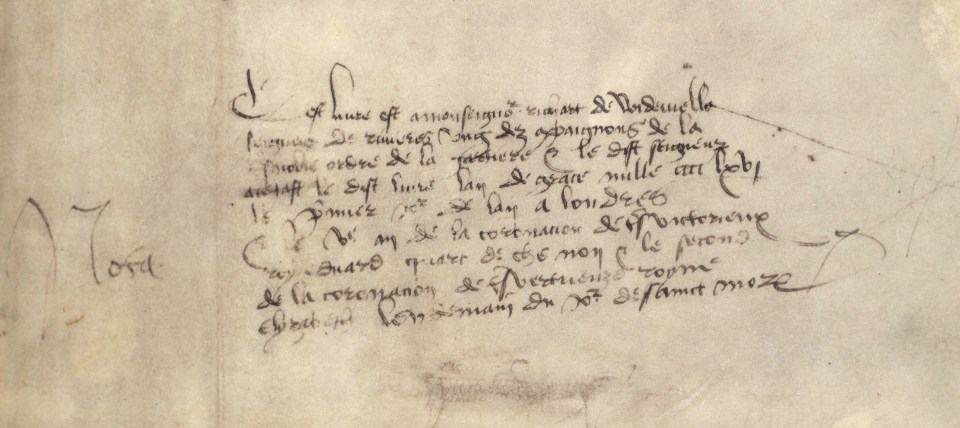 Cest livre est a monseignr richart de Widevielle
seigneur de riuieres ung dez compaignons de la
ordre de la gartiere et le dist seigneur
achast le dist livre lan de grace mille cccc lxvj
le pmier jor de lan a londres
et le Ve an de la coronacion de tresvictorieux
roy eduard quart de che non et le second
de la coronacion de tresvertueuse royne
Elyzabeth lendemain du jor de sainct more
Nota